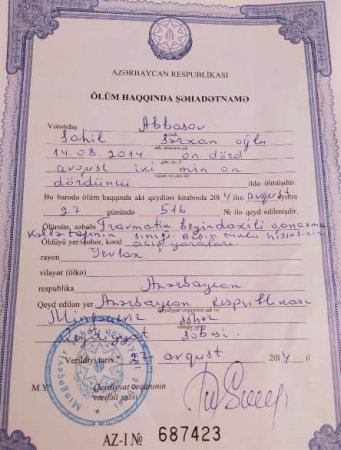 AZƏRBAYCAN RESPUBLİKASI
ÖLÜM HAQQINDA ŞƏHADƏTNAMƏ
Vətəndaş Abbasov
Sahil Sərxan oğlu
14.08.2014 on dörd
avqust iki min on
dördüncü ildə ölmüşdür.
Bu barədə ölüm haqqında akt qeydləri kitabında 2014 il avqust ayının
27 günündə 516 № ilə qeyd edilmişdir.
Ölümün səbəbi Travmatik beyindaxili qanaxma
Kəllə tağının sınığı
Öldüyü yer: şəhər, kənd
rayon Yevlax
vilayət (ölkə)
respublika Azərbaycan
Qeyd edilən yer Azərbaycan Respublikası
Mingəçevir şəhər
Qeydiyyat şöbəsi.
Verildiyi tarix 27 avqust 2014 il
M.Y. Qeydiyyat orqanının
vəzifəli şəxsi
AZ-I № 687423